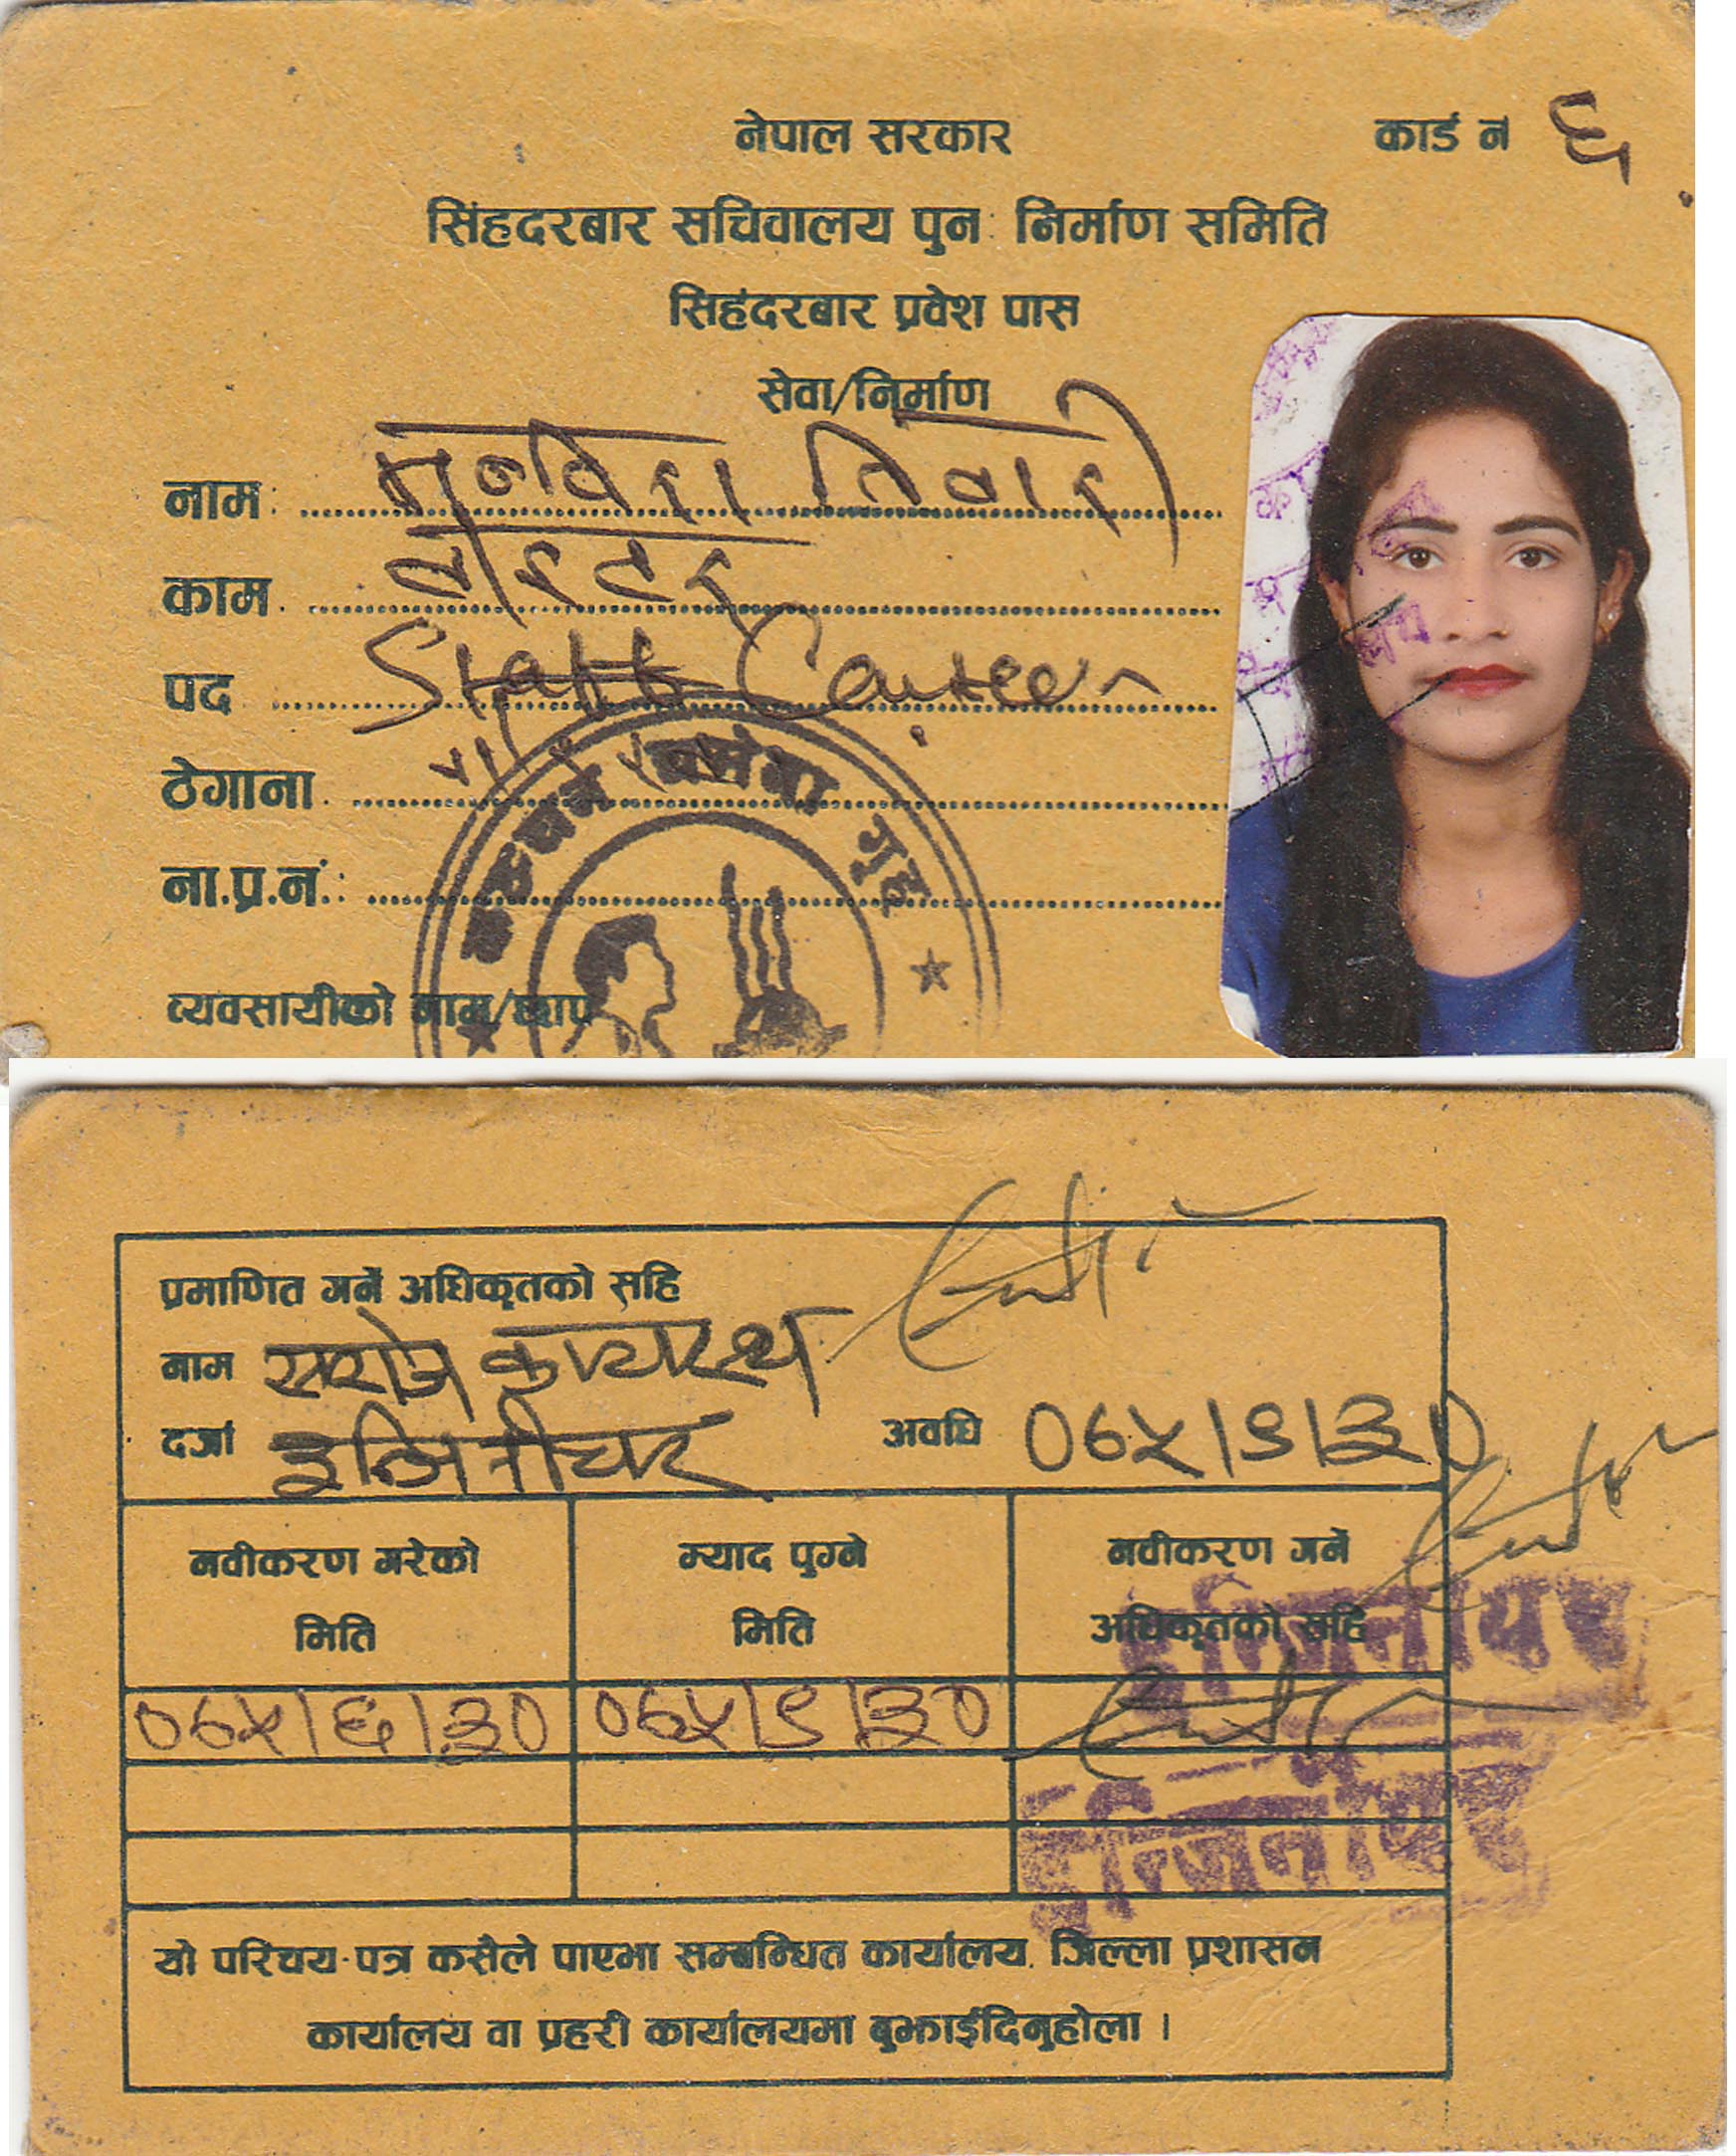 नेपाल सरकार
कार्ड नं ६
सिंहदरबार सचिवालय पुनः निर्माण समिति
सिहंदरबार प्रवेश पास
सेवा/निर्माण
नामः मनविरा तिवारी
काम. वोटर
पद Staff Canteen
ठेगाना.
ना.प्र.नं.:
व्यवसायीको नाम/छाप
गृह
प्रमाणित गर्ने अधिकृतको सहि
नाम सरोज कायस्थ
दर्जा इन्जिनीयर अवधि ०६५/९/३०
नवीकरण गरेको मिति
म्याद पुग्ने मिति
नवीकरण गर्ने अधिकृतको सहि
इन्जिनीयर
०६५/६/३० ०६५/९/३०
इन्जिनीयर
यो परिचय-पत्र कसैले पाएमा सम्बन्धित कार्यालय. जिल्ला प्रशासन
कार्यालय वा प्रहरी कार्यालयमा बुझाईदिनुहोला ।